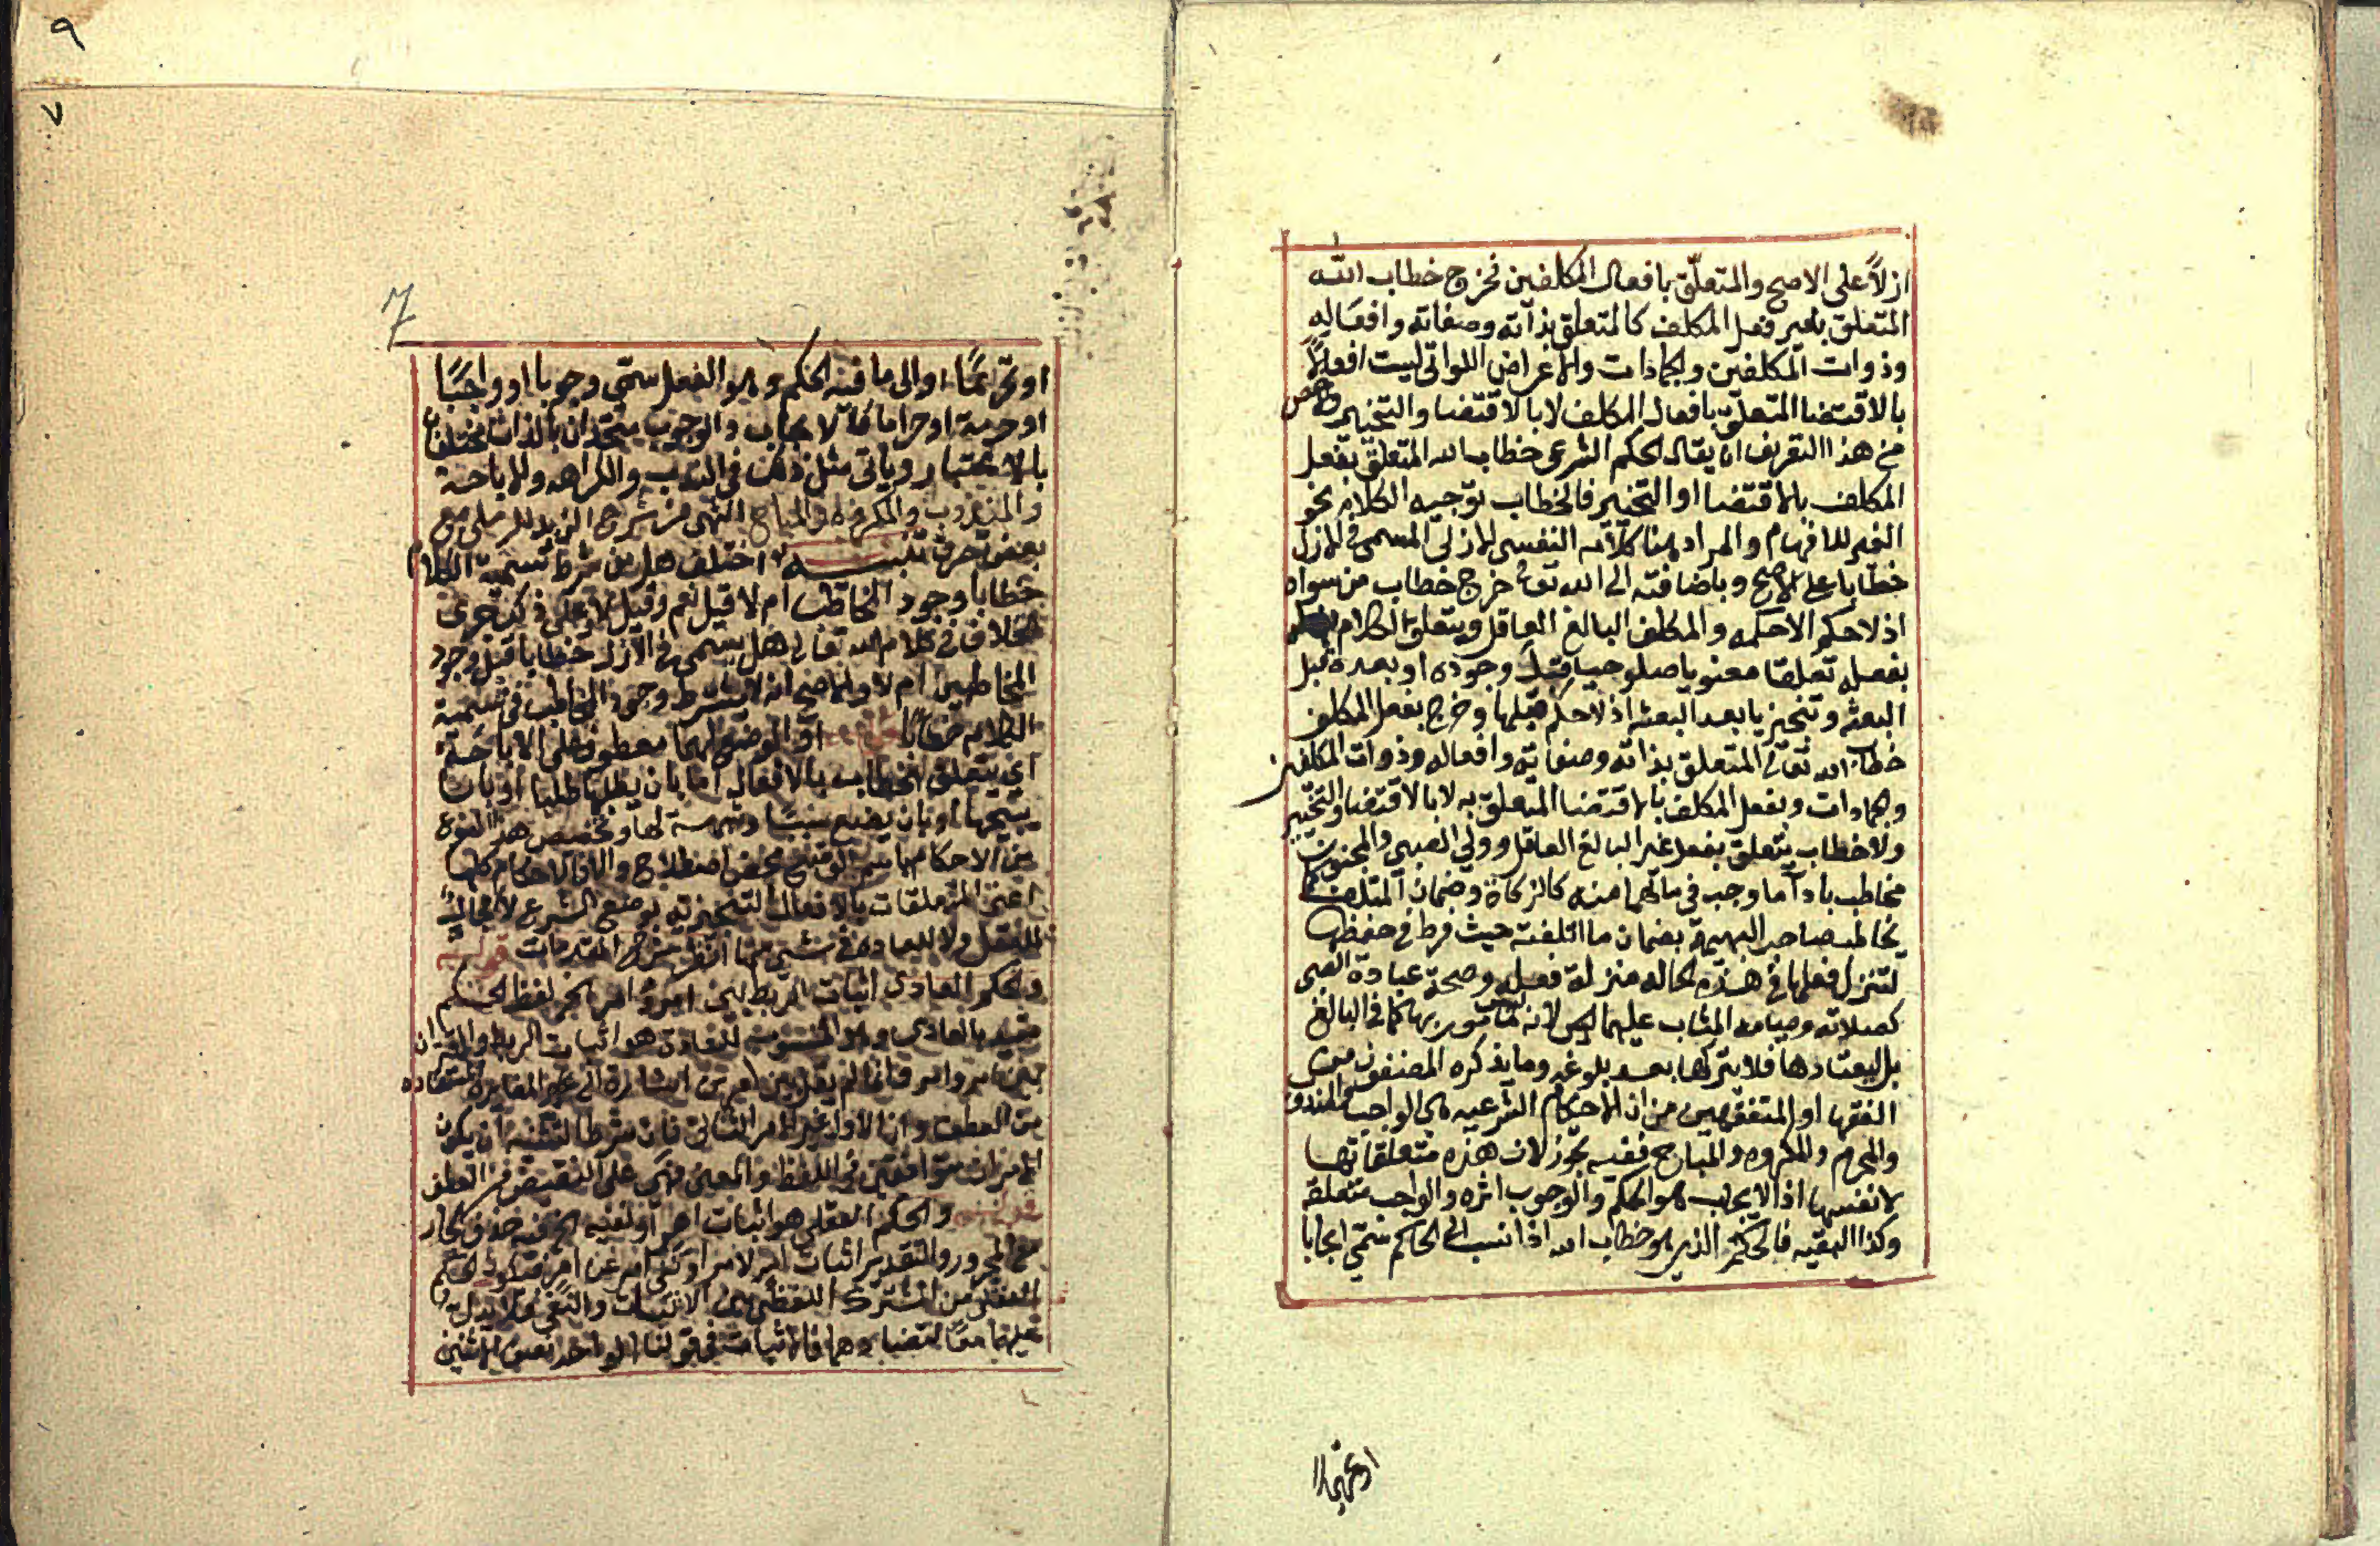 ازلاً على الاصح والمتعلّق بافعال المكلفين فخرج خطاب الله
المتعلق بغير فعل المكلف كالمتعلق بذاته وصفاته وافعاله
وذوات المكلفين والجمادات والاعراض اللواتى ليست افعالاً
بالاقتضا المتعلّق بافعال المكلف لا بالاقتضا والتخيير
من هذا التعريف ان يقال الحكم الشرعى خطاب الله المتعلق بفعل
المكلف بالاقتضا او التخيير فالخطاب توجيه الكلام نحو
الغير للافهام والمراد هنا كلامه النفسى الازلى المسمى فى الازل
خطابا على الاصح وباضافته الى الله تعالى خرج خطاب من سواه
اذ لا حكم الا حكمه والمكلف البالغ العاقل ويتعلق الكلام
بفعله تعلقا معنويا صلوحيا قبل وجوده او بعده قبل
البعثه وتنجيزيا بعد البعثه اذ لا حكم قبلها وخرج بفعل المكلف
خطاب الله تعالى المتعلق بذاته وصفاته وافعاله وذوات المكلفين
والجمادات وبفعل المكلف بالاقتضا المتعلق به لا بالاقتضا والتخيير
ولا خطاب يتعلق بفعل غير البالغ العاقل وولي الصبى والمجنون
مخاطب باداء ما وجب فى مالهما منه كالزكاة وضمان المتلف كما
يخاطب صاحب البهيمة بضمان ما اتلفته حيث فرط فى حفظها
لتنزل فعلها فى هذه الحاله منزلة فعله وصحة عبادة الصبى
كصلاته وصيامه المثاب عليهما ليس لانه مامور بها كما فى البالغ
بل ليعتادها فلا يتركها بعد بلوغه وما يذكره المصنفون من
الفقها او المتفقهين من ان الاحكام الشرعيه هى الواجب والمندوب
والمحرم والمكروه والمباح ففيه تجوز لان هذه متعلقاتها
لا نفسها اذ الايجاب هو الحكم والوجوب اثره والواجب متعلقه
وكذا البقيه فالحكم الذى هو خطاب الله اذا نسب الى الحاكم سمّى ايجابا
او تحريما
٩
٧
7
او تحريمًا او الى ما فيه الحكم وهو الفعل سمّى وجوبا او واجبًا
او حرمة او حراما فالايجاب والوجوب متحدان بالذات مختلفان
بالاعتبار وياتى مثل ذلك فى الندب والكراهه والاباحة
والمندوب والمكروه والمباح انتهى من شرح الزبد للرملى مع
بعض تصرف تنبيه اختلف هل من شرط تسمية الكلام
خطابا وجود المخاطب ام لا قيل نعم وقيل لا وعلى ذلك جرى
الخلاف فى كلام الله تعالى هل يسمى فى الازل خطابا قبل وجود
المخاطبين ام لا والاصح انه لا يشترط وجود المخاطب فى تسمية
الكلام خطابًا قوله او الوضع لهما معطوف على الاباحة
اي يتعلق الخطاب بالافعال اما بان يطلبها طلبا او بان
يبيحها او بان يضع سببًا وشرطا لها وتخصيص هذا النوع
من الاحكام باسم الوضع محض اصطلاح والا فالاحكام كلها
اعنى المتعلقات بالافعال التنجيزيه بوضع الشرع لا مجال
للعقل ولا للعادة فى شئ منها انتهى شرح المقدمات قوله
والحكم العادى اثبات الربط بين امر وامر الخ لفظ الحكم
مقيد بالعادى وهو المنسوب للعادة هو اثبات الربط
بين امر وامر وانما لم يقل بين امرين اشارة الى المغايرة المستفاده
من العطف وان الاول غير الامر الثانى فان شرط التثنية ان يكون
الامران متوافقين فى اللفظ والمعنى فهى على النقيض من العطف
قوله والحكم العقلى هو اثبات امر او نفيه الخ فيه حذف الجار
مع المجرور والتقدير اثبات امر لامر او نفى امر عن امر فيكون الحكم
العقلى من المشترك اللفظى بين الاثبات والنفى ولا يدل
عليهما معًا لتضادهما فالاثبات فى قولنا الواحد نصف الاثنين